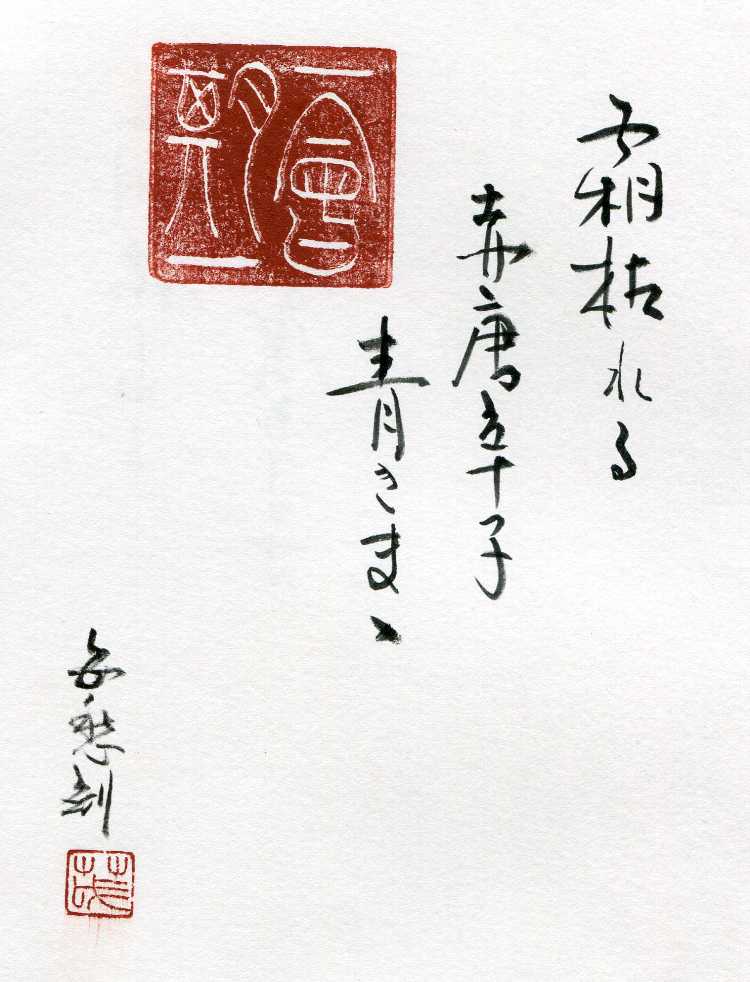 霜枯れる
赤唐辛子
青きまゝ
愁刻